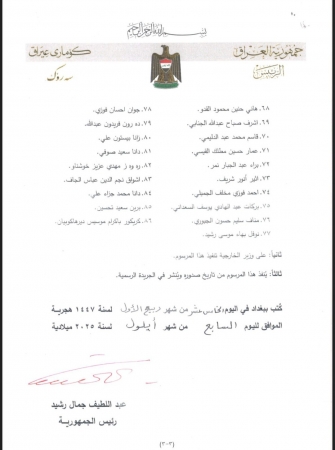 بسم الله الرحمن الرحيم
جمهورية العراق
الرئيس
كۆماری عێراق
سەرۆك
٦٨. هاني حنين محمود الفتو
٦٩. اشرف صباح عبدالله الجنابي
٧٠. قاسم محمد عبد الدليمي
٧١. عمار حسين مطلك القيسي
٧٢. براء عبد الجبار نمر
٧٣. اثير أنور شريف
٧٤. احمد فوزي مخلف الجميلي
٧٥. بركات عبد الهادي يوسف السعداني
٧٦. مناف سليم حسون الجبوري
٧٧. نوفل بهاء موسى رشيد
٧٨. جوان احسان فوزي
٧٩. ده رون فريدون عبدالله
٨٠. زانا بيستون علي
٨١. دانا سعيد صوفي
٨٢. مهدي عزيز خوشناو
٨٣. اشواق نجم الدين عباس الجاف
٨٤. دانا محمد جزاء علي
٨٥. برين سعيد تحسين
٨٦. كريكور باكرام موسيس ديرهاكوبيان
ثانياً: على وزير الخارجية تنفيذ هذا المرسوم.
ثالثاً: يُنفذ هذا المرسوم من تاريخ صدوره ويُنشر في الجريدة الرسمية.
كُتب ببغداد في اليوم من شهر ربيع الأول لسنة ١٤٤٧ هجرية
الموافق لليوم السابع من شهر أيلول لسنة ٢٠٢٥ ميلادية
عبد اللطيف جمال رشيد
رئيس الجمهورية
(٣-٣)